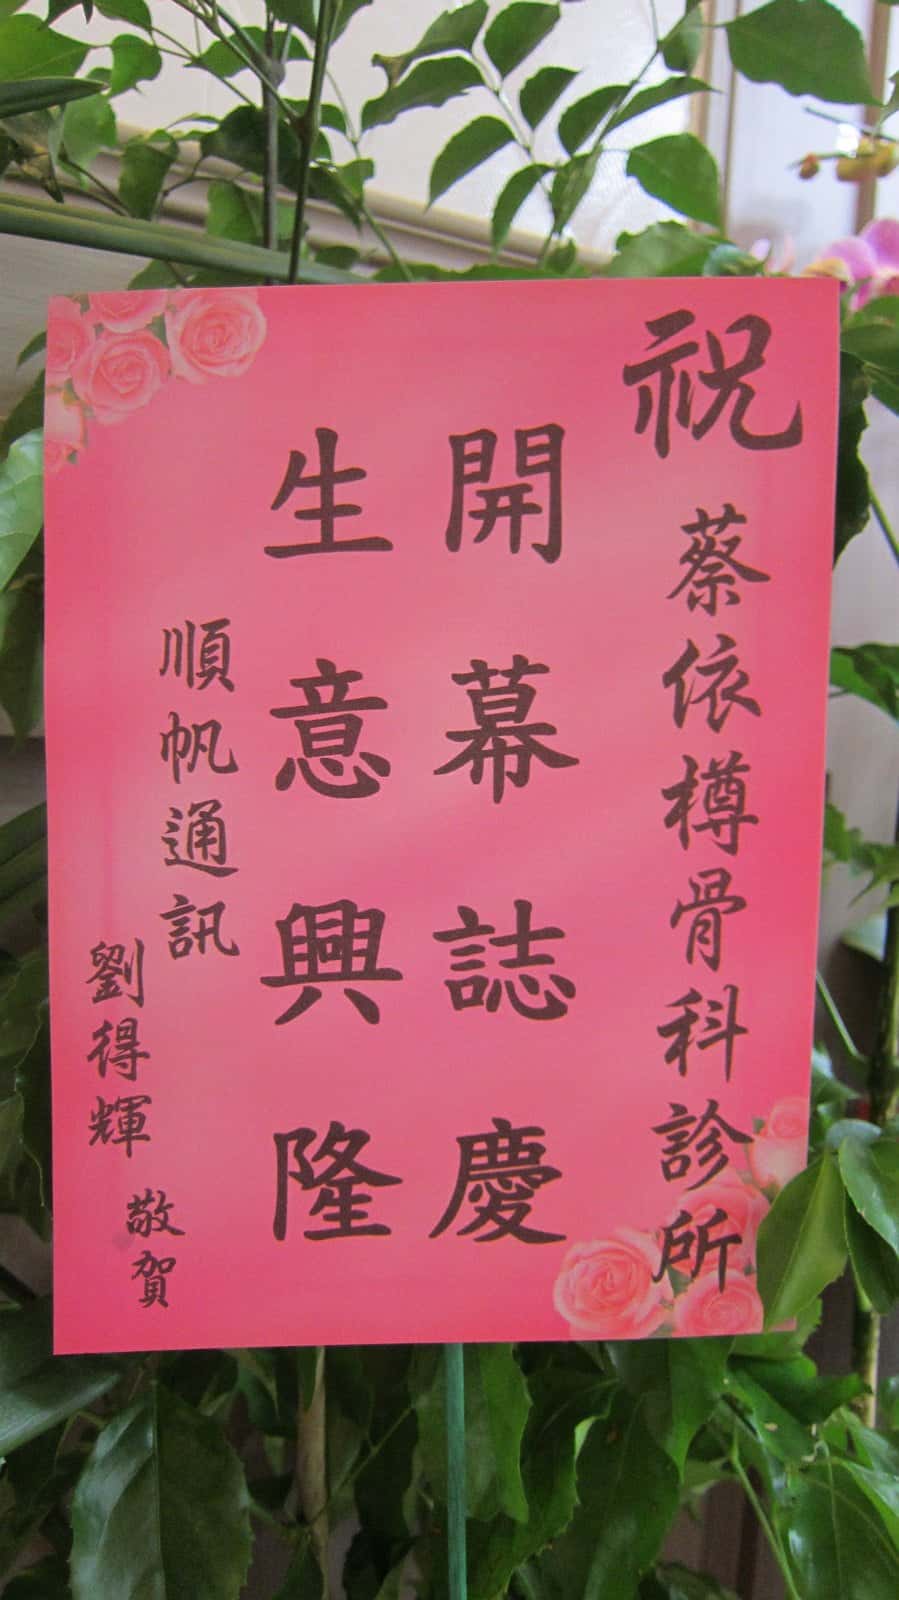 祝
蔡依樽骨科診所
開幕誌慶
生意興隆
順帆通訊
劉得輝
敬賀